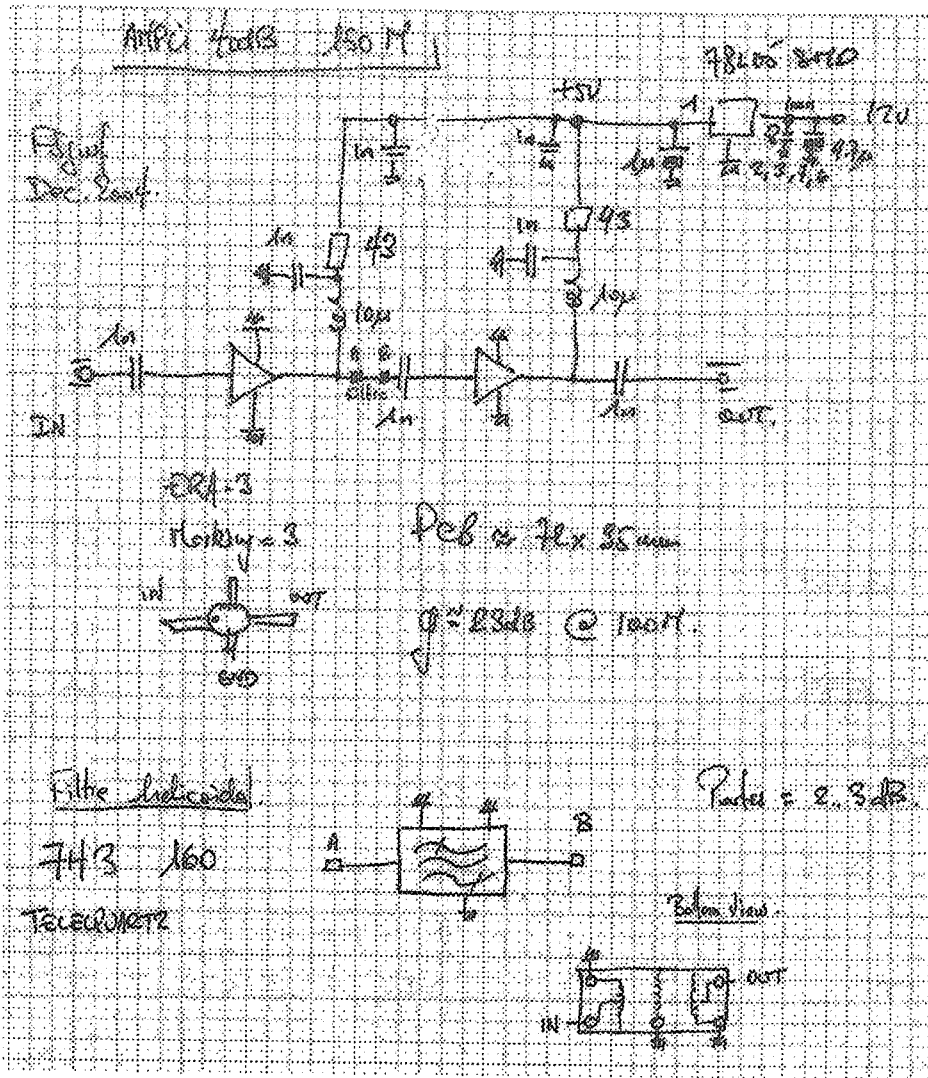 AMPLI 40dB 150 M
78L05 SMD
+5V
1
12V
1n
1n
1µ
2,3,
4.7µ
Dec. 2004.
43
1n
1n
93
10µ
10µ
1n
A B
filtre
1n
1n
IN
OUT.
ERA-3
Marking = 3
PCB ≈ 72 x 35 mm
IN OUT
GND
g ≈ 23dB @ 100M.
Filtre helicoidal
Pertes = 2.3 dB.
A B
7H3 160
TELEQUARTZ
Bottom View.
IN OUT